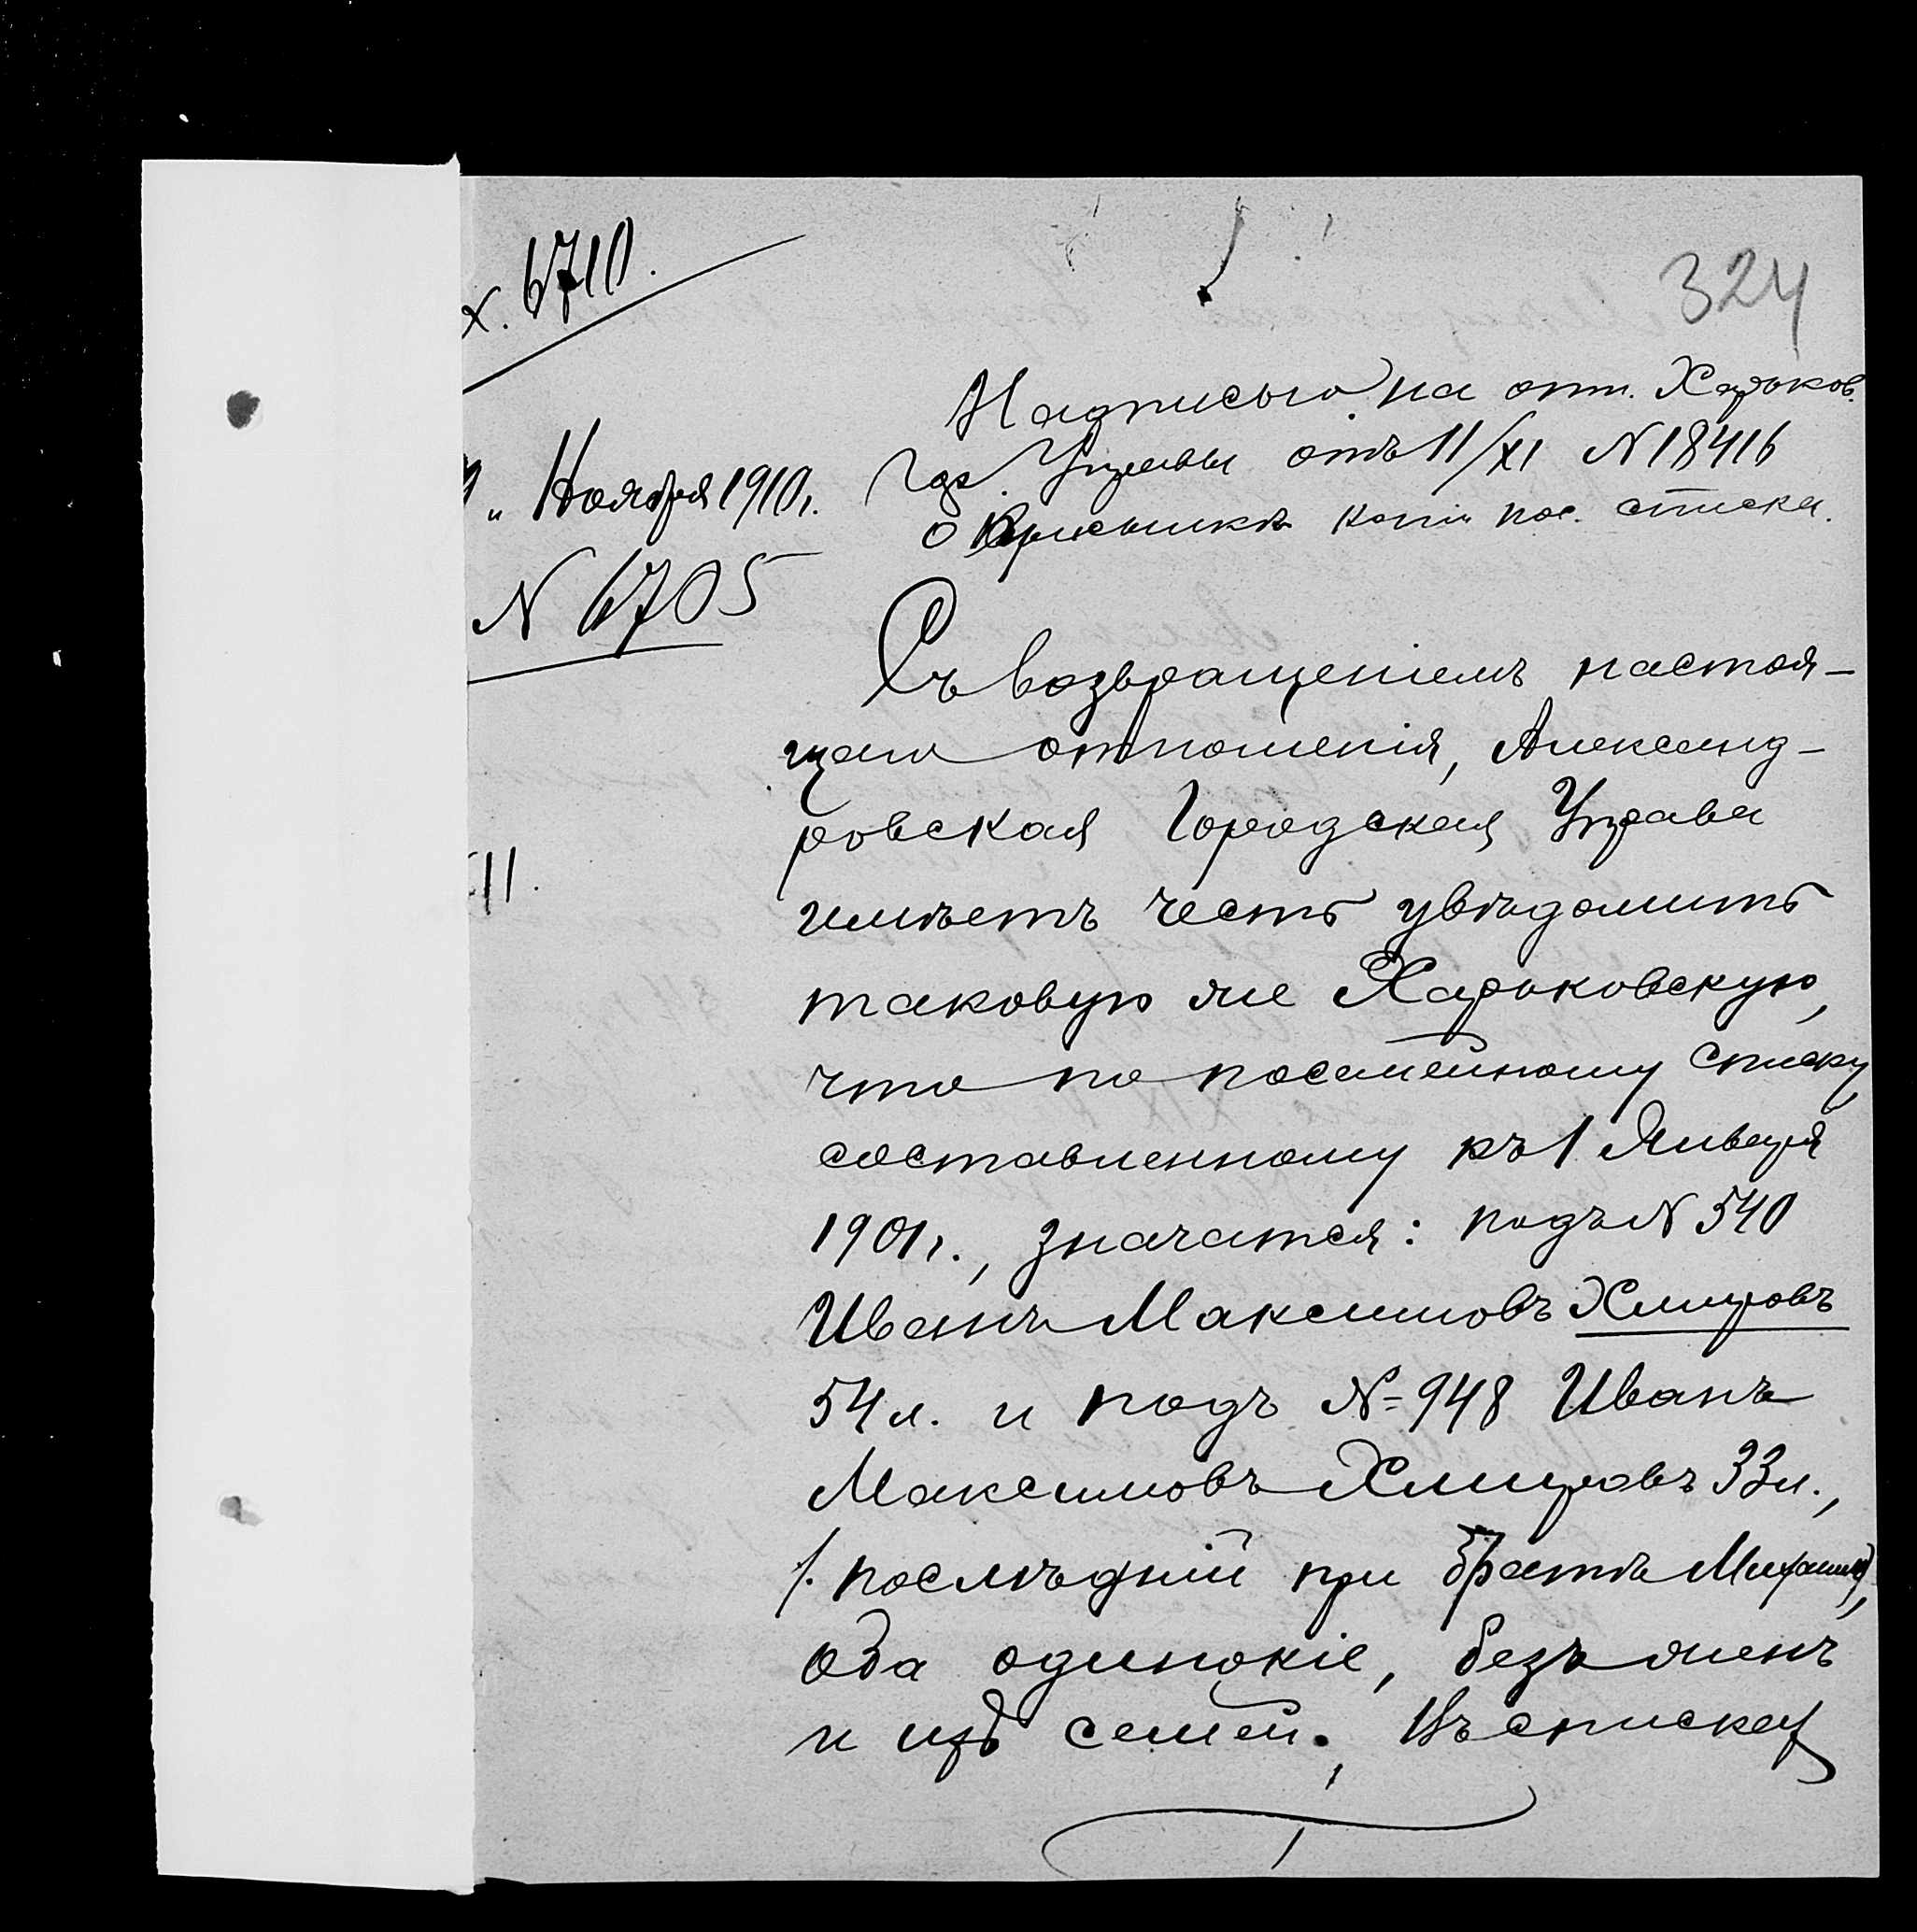 х. 6710.
324
" Ноября 1910 г.
N 6705
11.
Надписью на отн. Харьков.
Гор. Управы отъ 11/XI N 18416
о высылкѣ копіи пос. списка.
Съ возвращеніемъ настоя-
щаго отношенія, Александ-
ровская Городская Управа
имѣетъ честь увѣдомить
таковую же Харьковскую,
что по посемейному списку,
составленному къ 1 Января
1901 г., значатся: подъ N 540
Иванъ Максимовъ Хмировъ
54 л. и подъ № 948 Иванъ
Максимовъ Хмировъ 33 л.,
послѣдній при братѣ Михаилѣ,
оба одинокіе, безъ женъ
и семей. Въ спискахъ